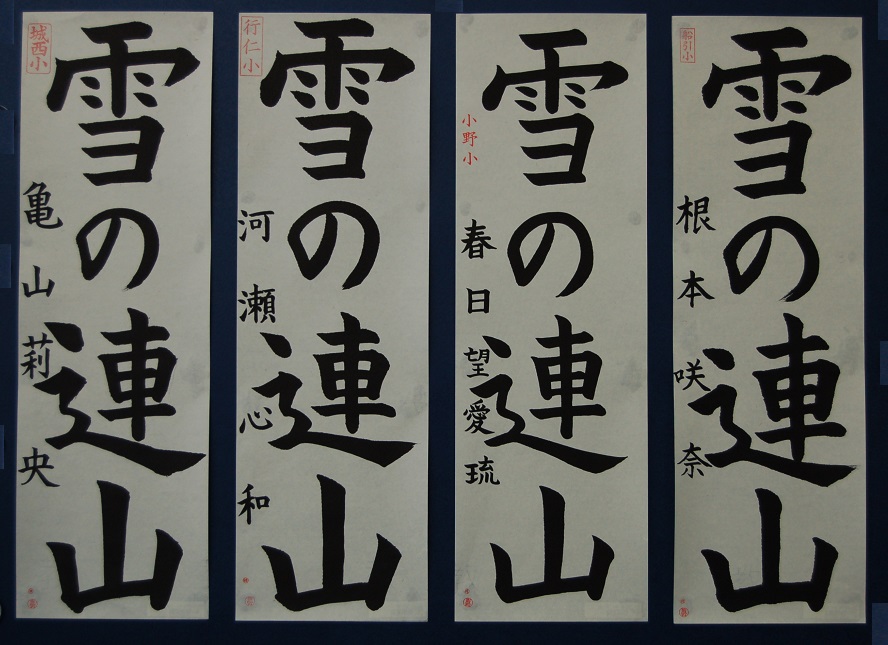 雪の連山
根本咲奈
船引小
雪の連山
春日望愛琉
小野小
雪の連山
河瀬心和
行仁小
雪の連山
亀山莉央
城西小